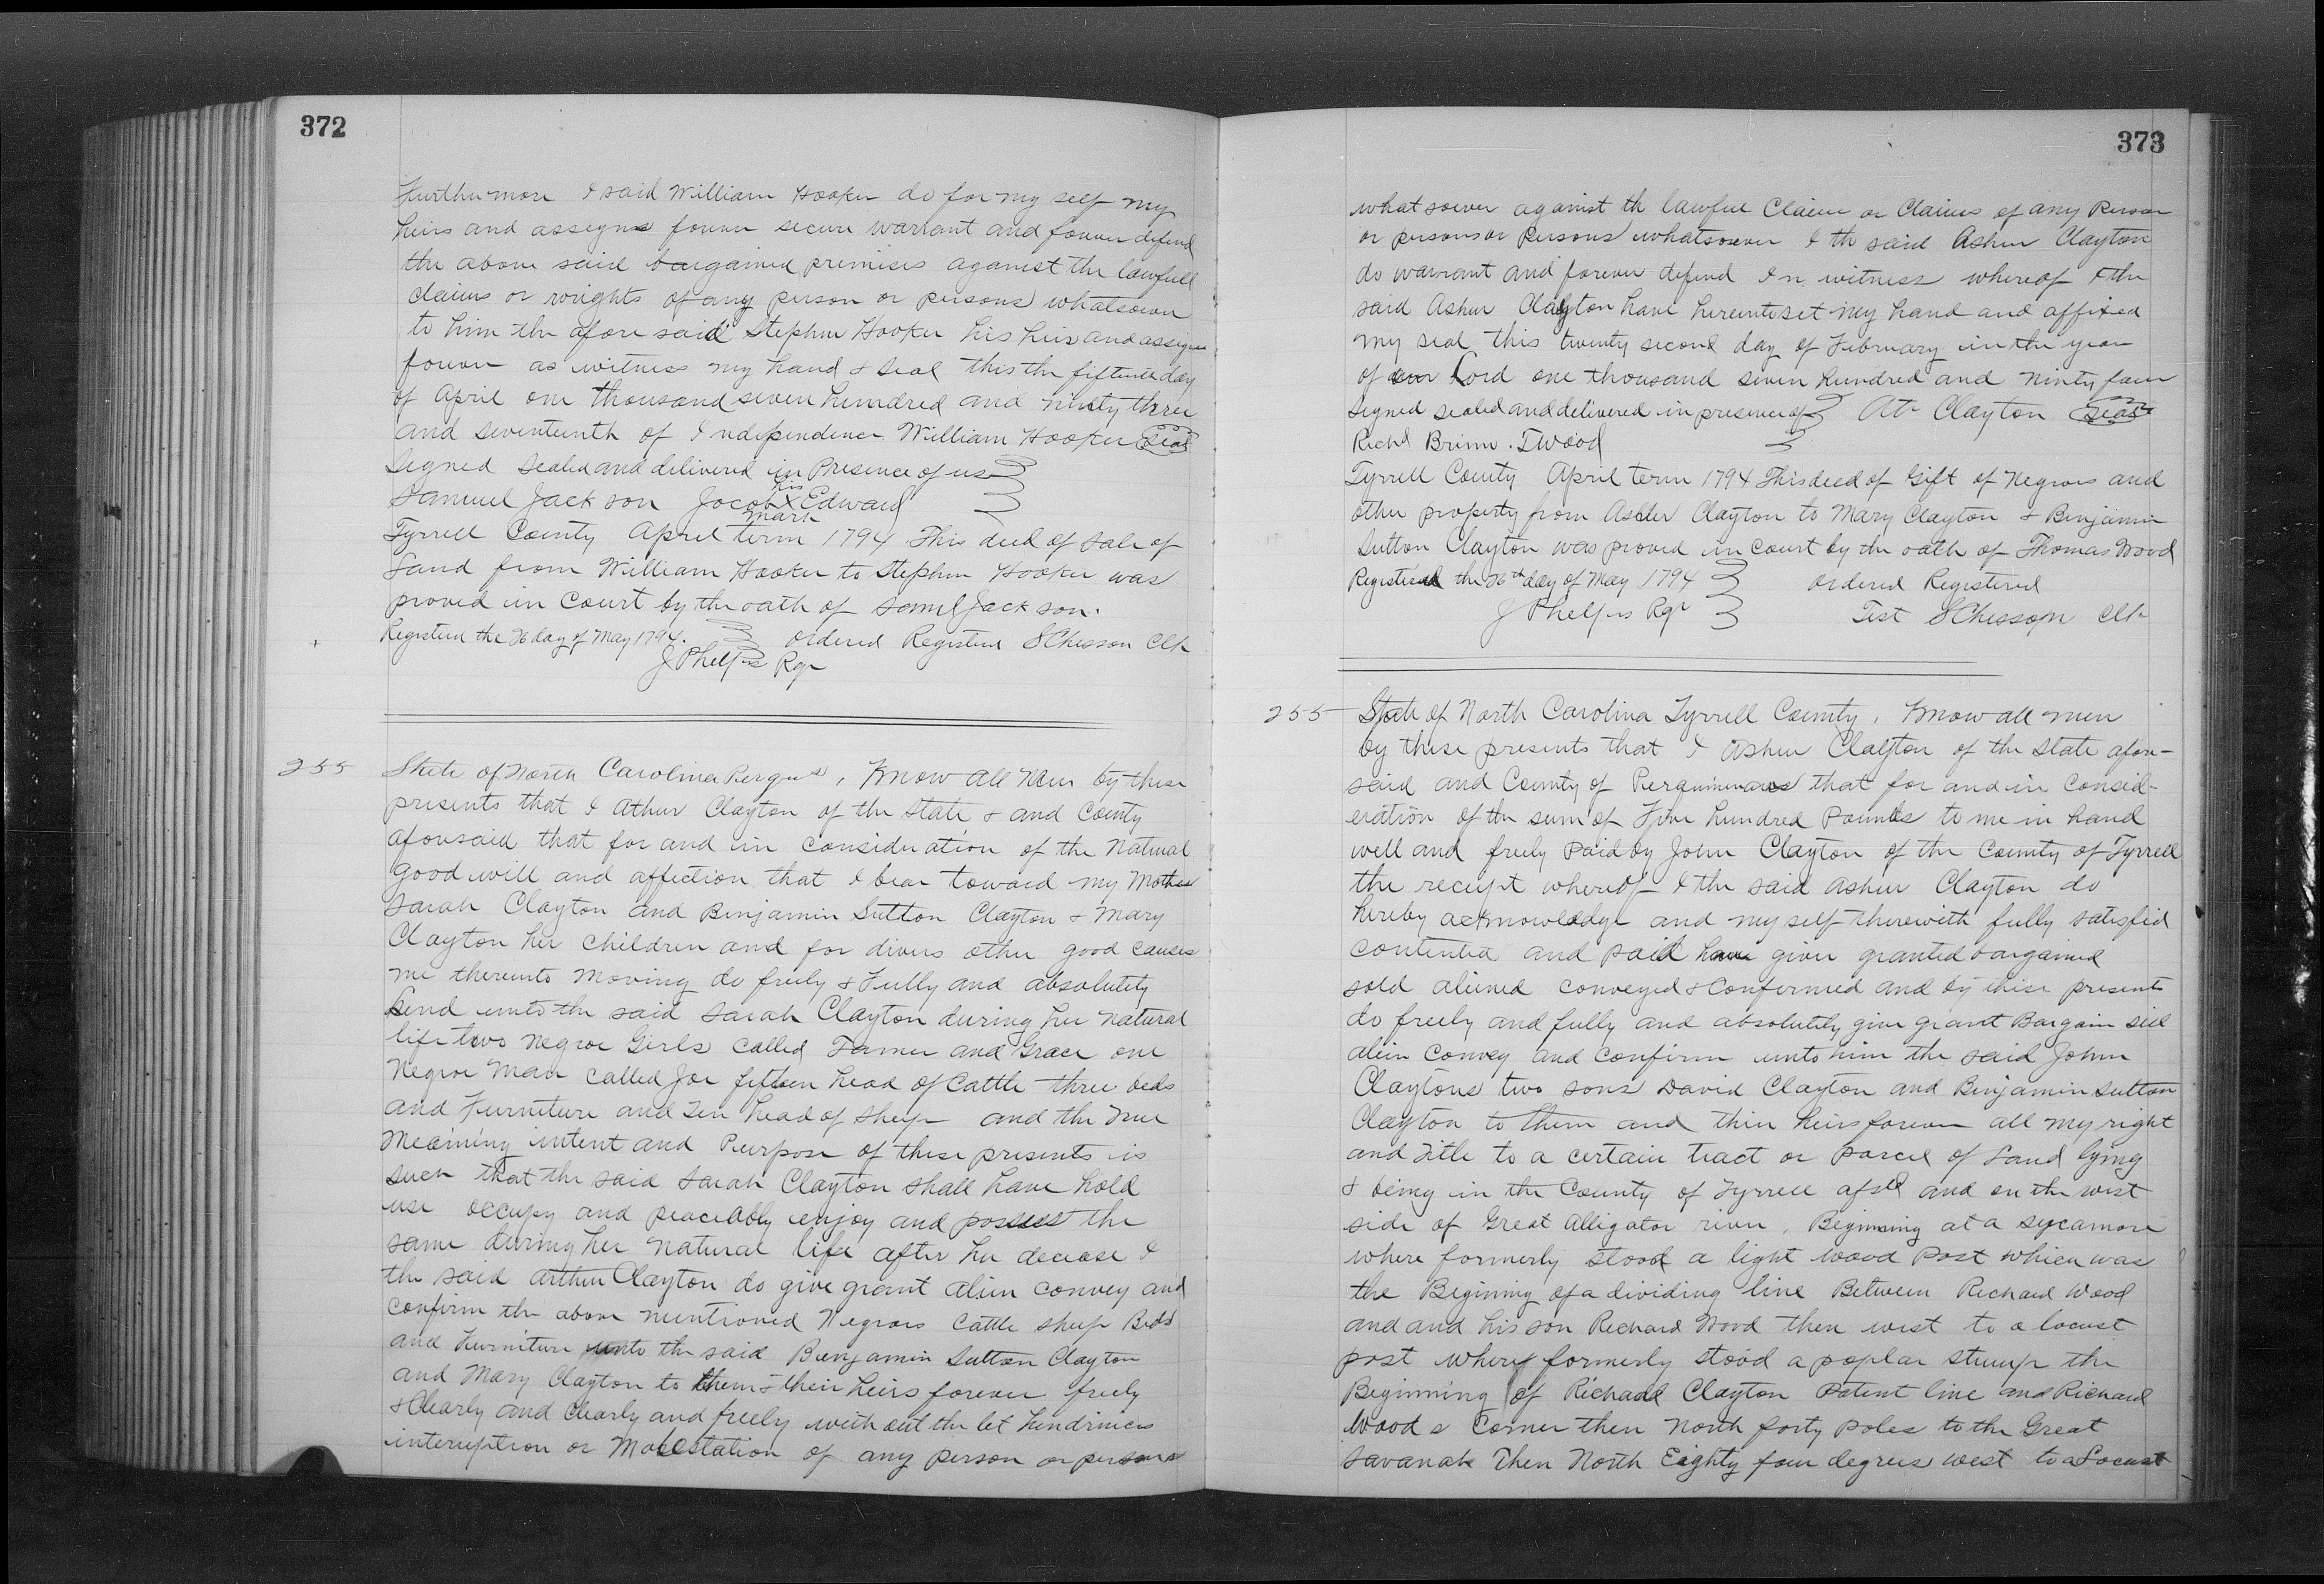 372
Furthermore I said William Hooker do for my self my
heirs and assigns forever secure warrant and forever defend
the above said bargained premises aganist the lawfull
claims or wrights of any person or persons whatsoever
to him the afore said Stephen Hooker his heirs and assigns
forever as witness my hand & Seal this the fifteenth day
of April one thousand seven hundred and ninty three
and seventeenth of Independence William Hooker Seal
Signed Sealed and delivered in Presence of us
Samuel Jackson Jocob his X mark Edward
Tyrrell County April term 1794 This deed of sale of
Land from William Hooker to Stephen Hooker was
proved in Court by the oath of Saml Jackson.
Registered the 26 day of May 1794. ordered Registered S Chesson Clk
J Phelps Rgr
255 State of North Carolina Perqus. Know all Men by these
presents that I Athur Clayton of the State & and County
aforesaid that for and in consideration of the Natural
good will and affection that I bear toward my Mother
Sarah Clayton and Benjamin Sutton Clayton & Mary
Clayton her children and for divers other good causes
me thereunto moving do freely & Fully and absolutely
Lend unto the said Sarah Clayton during her natural
life two Negroe Girls called Tamer and Grace one
Negroe Man called Joe fifteen head of Cattle three beds
and Furniture and Ten head of sheep and the true
Meaining intent and Peurpose of these presents is
such that the said Sarah Clayton shall have hold
use occupy and peaceably enjoy and possess the
same during her natural life after her decease I
the said Arthur Clayton do give grant alien convey and
confirm the above mentioned Negroes Cattle sheep Beds
and Furniture unto the said Benjamin Sutton Clayton
and Mary Clayton to them & their heirs forever freely
& Clearly and Clearly and freely with out the let hindrinces
interruption or Molestation of any person or persons
373
whatsoever aganist th lawful Claim or Claims of any Person
or persons or Persons whatsoever I the said Asher Clayton
do warrant and forever defend In witness whereof I the
said Asher Clayton have hereuntoset my hand and affixed
my seal this twenty second day of February in the year
of our Lord one thousand seven hundred and ninty four
Signed sealed and delivered in presence of At Clayton Seal
Richd Brinn. T Wood
Tyrrell County April term 1794 This deed of Gift of Negroes and
other property from Asher Clayton to Mary Clayton & Benjamin
Sutton Clayton was proved in Court by the oath of Thomas Wood
Registered the 26th day of May 1794 ordered Registered
J Phelps Rgr Test S Chesson Clk
255 State of North Carolina Tyrrell County. Know all men
by these presents that I Asher Clayton of the State afore-
said and County of Perquimans that for and in Consid-
eration of the sum of Five hundred Pounds to me in hand
well and freely Paid by John Clayton of the County of Tyrrell
the receipt whereof I the said Asher Clayton do
hereby acknowledge and my self therewith fully satisfied
contented and paid have given granted bargained
sold aliened conveyed & Confirmed and by these presents
do freely and fully and absolutely give grant Bargain sell
alein Convey and confirm unto him the said John
Claytons two sons David Clayton and Benjamin Sutton
Clayton to them and thin heirs forever all my right
and Title to a certain tract or parcel of Land lying
& being in the County of Tyrrell afsd and on the west
side of Great Alligator river. Beginning at a sycamore
where formerly stood a light wood post which was
the Begining of a dividing line Between Richard Wood
and and his son Richard Wood then west to a locust
post where formerly stood a poplar stump the
Beginning of Richard Clayton Patent line and Richard
Woods Corner then North forty poles to the Great
savanah Then North Eighty four degrees west to a Locust